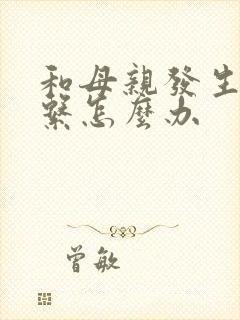 和母親發生
繫怎麼办
曾敏